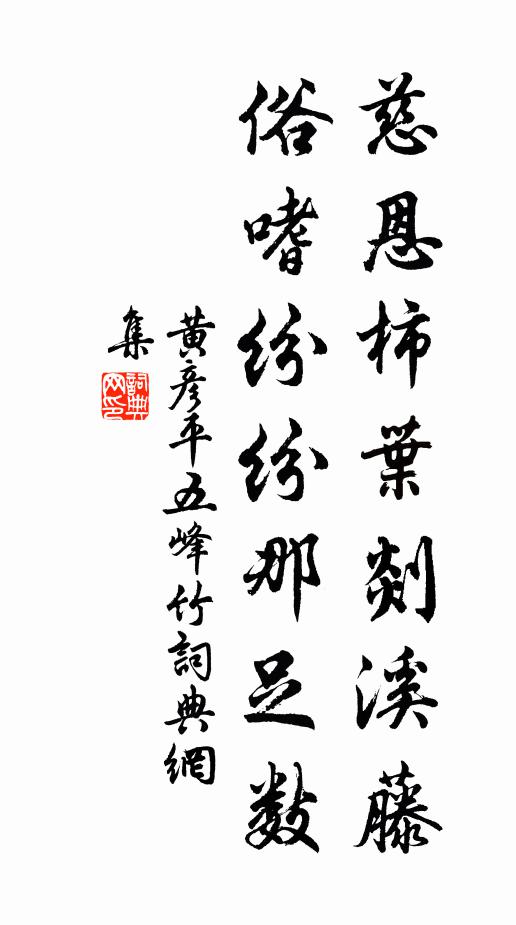 慈恩柿葉剡溪藤
俗嗜紛紛那足數
黃彥平五峰竹詞典網
集
詞典网印